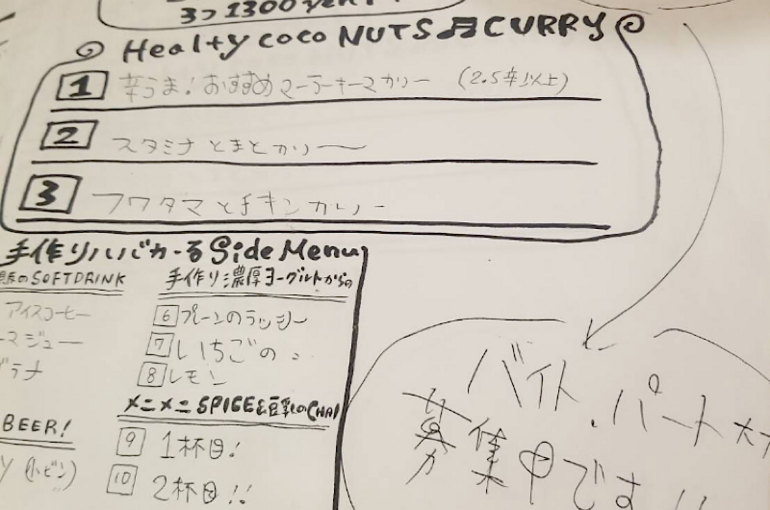 3つ1300
Healty coco NUTS CURRY
1 辛うま!おすすめマーラーキーマカリー (2.5辛以上)
2 スタミナとまとカリー
3 フワタマとチキンカリー
手作りハバかーる Side Menu
のSOFTDRINK
アイスコーヒー
手作り濃厚ヨーグルトからの
6 プレーンのラッシー
7 いちごの 〃
8 レモン
メニメニSPICE&豆乳のCHAI
9 1杯目!
10 2杯目!!
BEER!
(小ビン)
バイト、パート大
募集中です!!